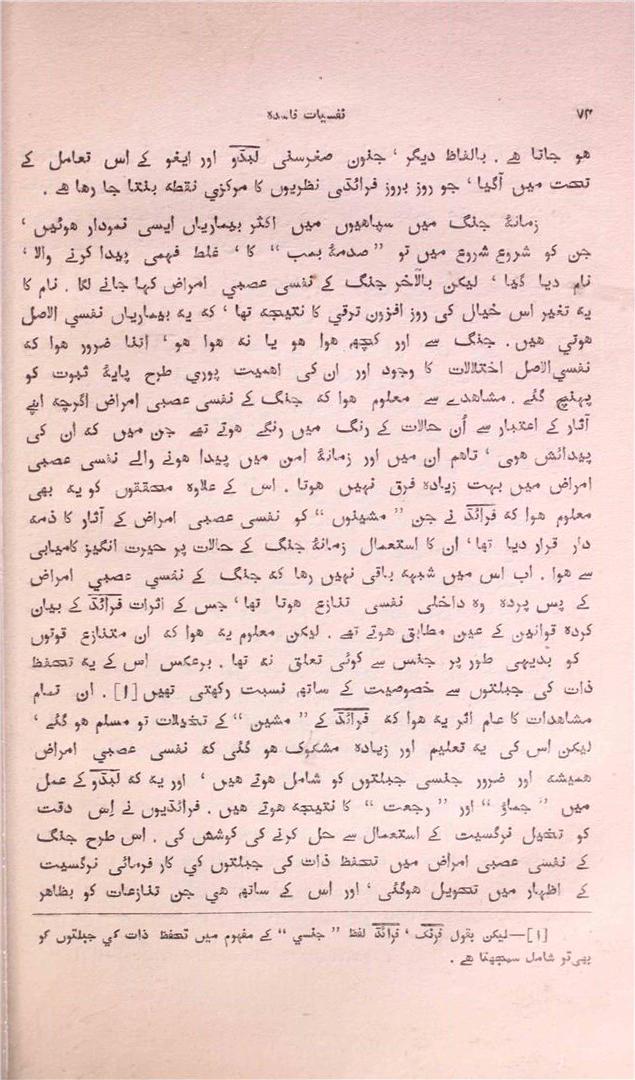 ۷۴ نفسیات فاسدہ
ہو جاتا ہے . بالفاظ دیگر ' جنون صغرسنی لبڈو اور ایغو کے اس تعامل کے
تحت میں آگیا ' جو روز بروز فرائڈی نظریوں کا مرکزی نقطہ بنتا جا رہا ہے .
زمانۂ جنگ میں سپاہیوں میں اکثر بیماریاں ایسی نمودار ہوئیں '
جن کو شروع شروع میں تو ”صدمۂ بمب“ کا ' غلط فہمی پیدا کرنے والا '
نام دیا گیا ' لیکن بالآخر جنگ کے نفسی عصبی امراض کہا جانے لگا . نام کا
یہ تغیر اس خیال کی روز افزوں ترقی کا نتیجہ تھا ' کہ یہ بیماریاں نفسی الاصل
ہوتی ہیں . جنگ سے اور کچھ ہوا ہو یا نہ ہوا ہو ' اتنا ضرور ہوا کہ
نفسی الاصل اختلالات کا وجود اور ان کی اہمیت پوری طرح پایۂ ثبوت کو
پہنچ گئے . مشاہدے سے معلوم ہوا کہ جنگ کے نفسی عصبی امراض اگرچہ اپنے
آثار کے اعتبار سے اُن حالات کے رنگ میں رنگے ہوتے تھے جن میں کہ ان کی
پیدائش ہوی ' تاہم ان میں اور زمانۂ امن میں پیدا ہونے والے نفسی عصبی
امراض میں بہت زیادہ فرق نہیں ہوتا . اس کے علاوہ محققوں کو یہ بھی
معلوم ہوا کہ فرائڈ نے جن ”مشینوں“ کو نفسی عصبی امراض کے آثار کا ذمہ
دار قرار دیا تھا ' ان کا استعمال زمانۂ جنگ کے حالات پر حیرت انگیز کامیابی
سے ہوا . اب اس میں شبہہ باقی نہیں رہا کہ جنگ کے نفسی عصبی امراض
کے پس پردہ وہ داخلی نفسی تنازع ہوتا تھا ' جس کے اثرات فرائڈ کے بیان
کردہ قوانین کے عین مطابق ہوتے تھے . لیکن معلوم یہ ہوا کہ ان متنازع قوتوں
کو بدیہی طور پر جنس سے کوئی تعلق نہ تھا . برعکس اس کے یہ تحفظ
ذات کی جبلتوں سے خصوصیت کے ساتھ نسبت رکھتی تھیں [۱] . ان تمام
مشاہدات کا عام اثر یہ ہوا کہ فرائڈ کے ”مشین“ کے تخیلات تو مسلم ہو گئے '
لیکن اس کی یہ تعلیم اور زیادہ مشکوک ہو گئی کہ نفسی عصبی امراض
ہمیشہ اور ضرور جنسی جبلتوں کو شامل ہوتے ہیں ' اور یہ کہ لبڈو کے عمل
میں ”جماؤ“ اور ”رجعت“ کا نتیجہ ہوتے ہیں . فرائڈیوں نے اِس دقت
کو تخیل نرگسیت کے استعمال سے حل کرنے کی کوشش کی . اس طرح جنگ
کے نفسی عصبی امراض میں تحفظ ذات کی جبلتوں کی کار فرمائی نرگسیت
کے اظہار میں تحویل ہوگئی ' اور اس کے ساتھ ہی جن تنازعات کو بظاہر
[۱]—لیکن بقول فرنک ' فرائڈ لفظ ”جنسی“ کے مفہوم میں تحفظ ذات کی جبلتوں کو
بھی تو شامل سمجھتا ہے .